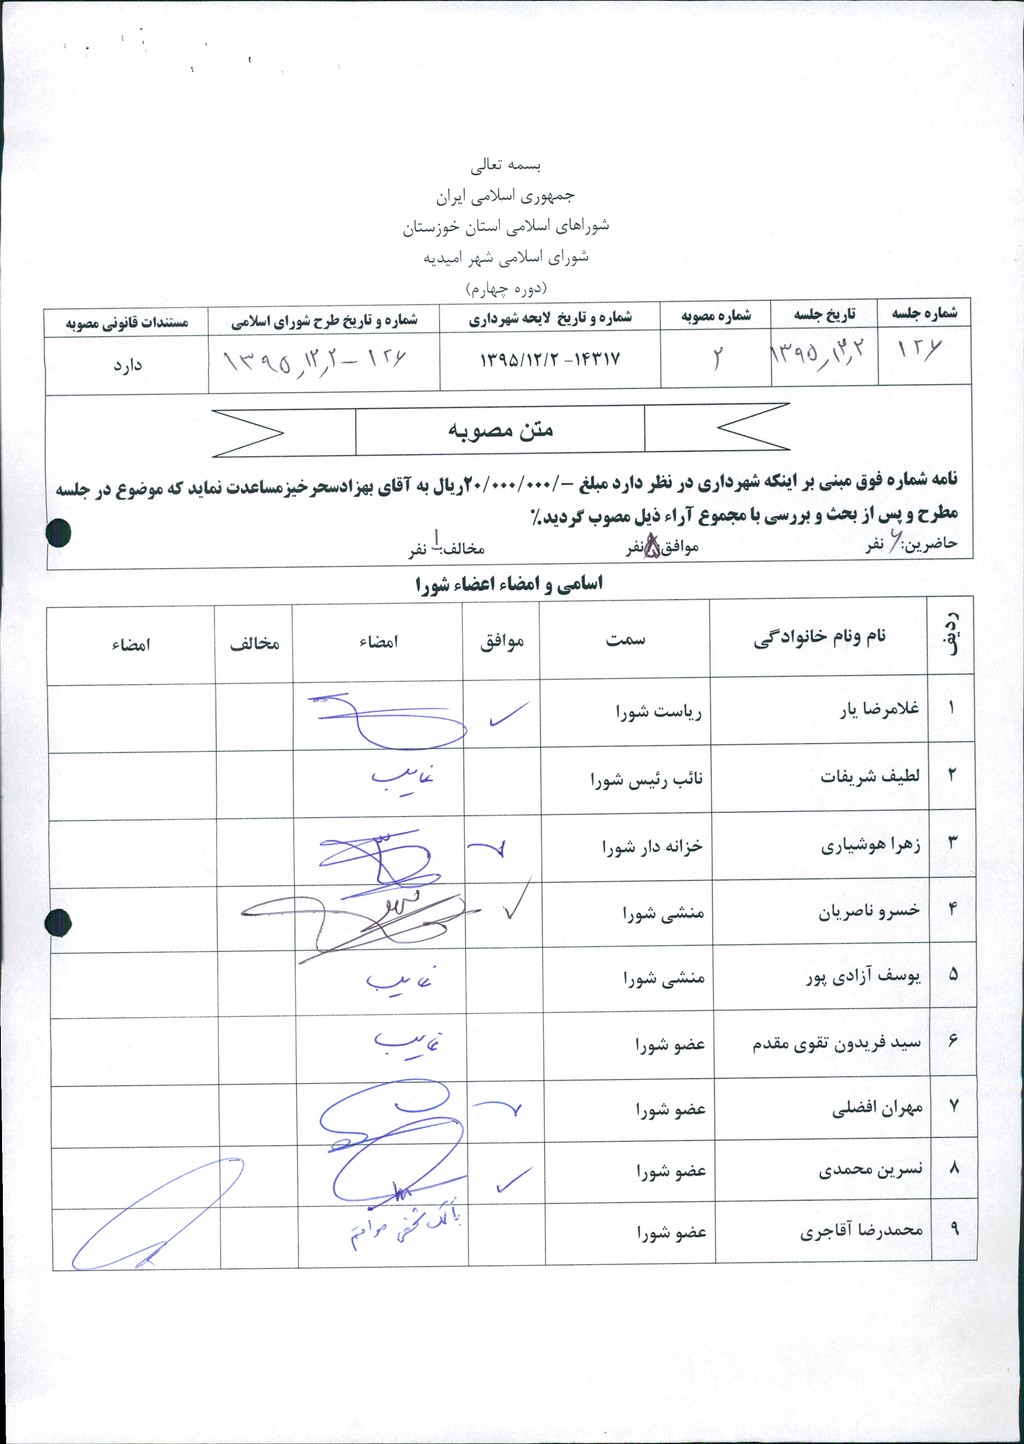 بسمه تعالی
جمهوری اسلامی ایران
شوراهای اسلامی استان خوزستان
شورای اسلامی شهر امیدیه
(دوره چهارم)
شماره جلسه تاریخ جلسه شماره مصوبه شماره و تاریخ لایحه شهرداری شماره و تاریخ طرح شورای اسلامی مستندات قانونی مصوبه
۱۲۶ ۱۳۹۵/۱۲/۲ ۲ ۱۴۳۱۷- ۱۳۹۵/۱۲/۲ ۱۲۶ – ۱۳۹۵/۱۲/۲ دارد
متن مصوبه
نامه شماره فوق مبنی بر اینکه شهرداری در نظر دارد مبلغ –/۲۰/۰۰۰/۰۰۰ریال به آقای بهزادسحرخیزمساعدت نماید که موضوع در جلسه
مطرح و پس از بحث و بررسی با مجموع آراء ذیل مصوب گردید٪
حاضرین:۶ نفر موافق: نفر مخالف:۱ نفر
اسامی و امضاء اعضاء شورا
ردیف نام ونام خانوادگی سمت موافق امضاء مخالف امضاء
۱ غلامرضا یار ریاست شورا ✓
۲ لطیف شریفات نائب رئیس شورا غایب
۳ زهرا هوشیاری خزانه دار شورا ✓
۴ خسرو ناصریان منشی شورا ✓
۵ یوسف آزادی پور منشی شورا غایب
۶ سید فریدون تقوی مقدم عضو شورا غایب
۷ مهران افضلی عضو شورا ✓
۸ نسرین محمدی عضو شورا ✓
۹ محمدرضا آقاجری عضو شورا با کمک شخصی موافقم